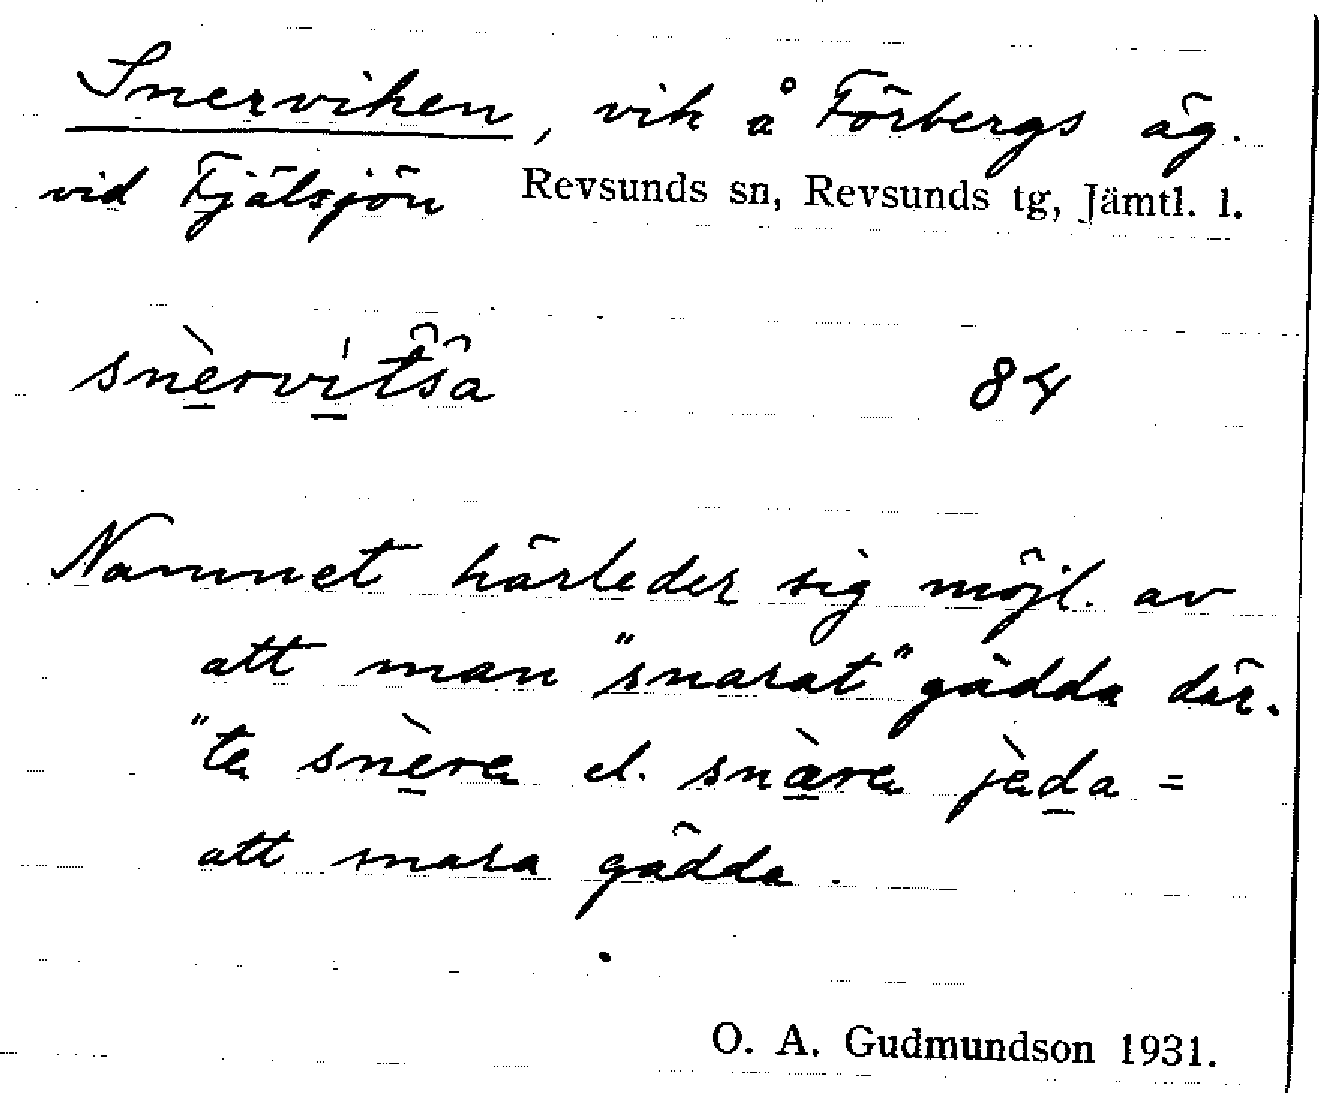 Snerviken, vik å Förbergs äg.
vid Fjälsjön Revsunds sn, Revsunds tg, Jämtl. l.
snèrvitša 84
Namnet härleder sig möjl. av
att man "snarat" gädda där.
"te snère el. snàre jèda =
att snara gädda.
O. A. Gudmundson 1931.